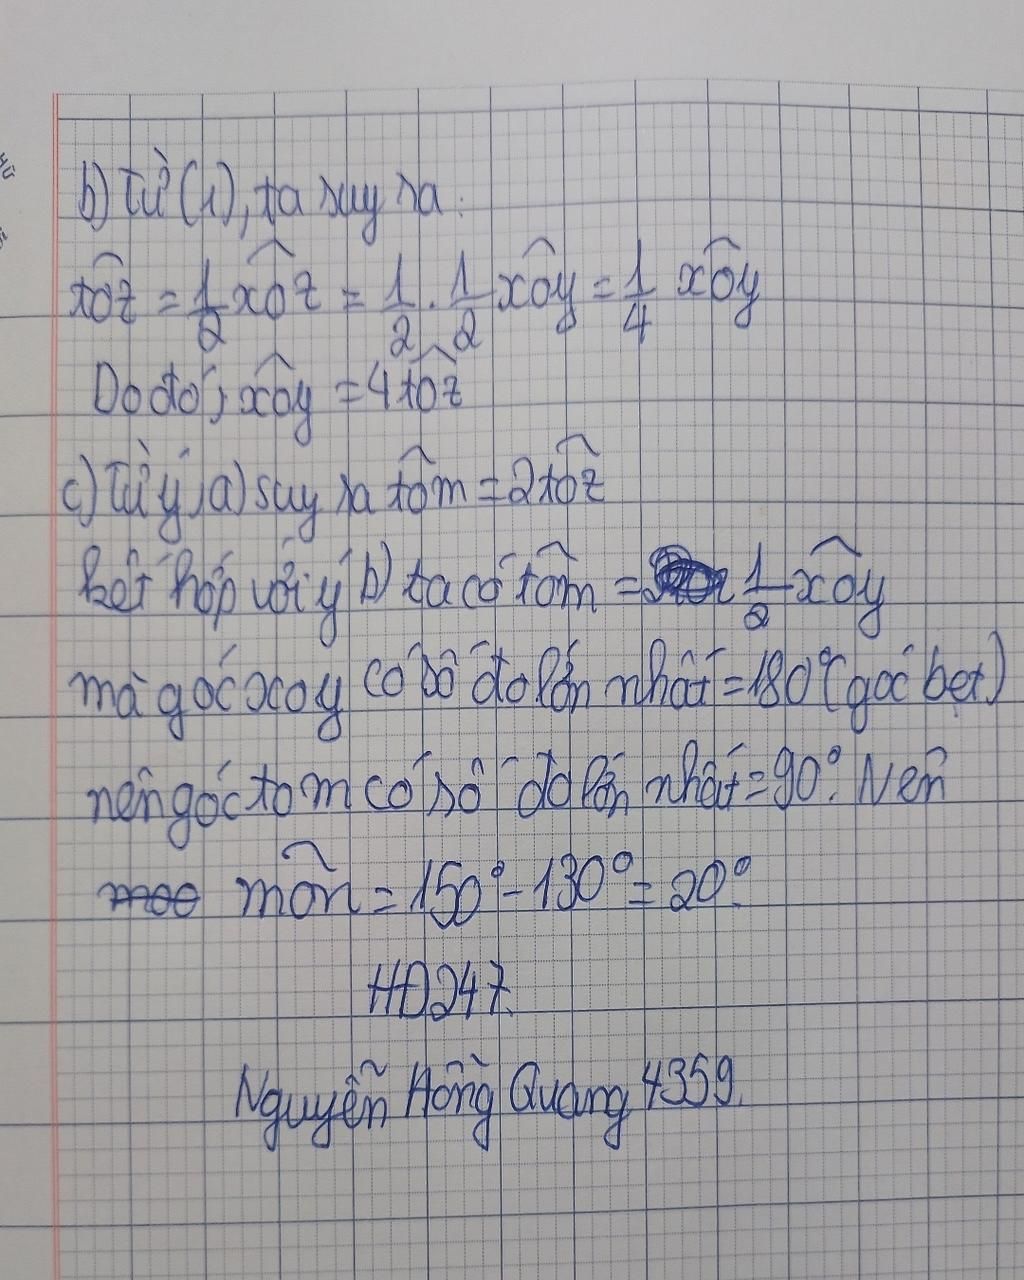 b) Từ (1), ta suy ra:
tôz = 1/2 xôz = 1/2 . 1/2 xôy = 1/4 xôy
Do đó, xôy = 4 tôz
c) Từ ý a) suy ra tôm = 2 tôz
kết hợp với ý b) ta có tôm = 1/2 xôy
mà góc xoy có số đo lớn nhất = 180° (góc bẹt)
nên góc tom có số đo lớn nhất = 90°. Nên
môn = 150° - 130° = 20°.
HD247.
Nguyễn Hồng Quang 4359.